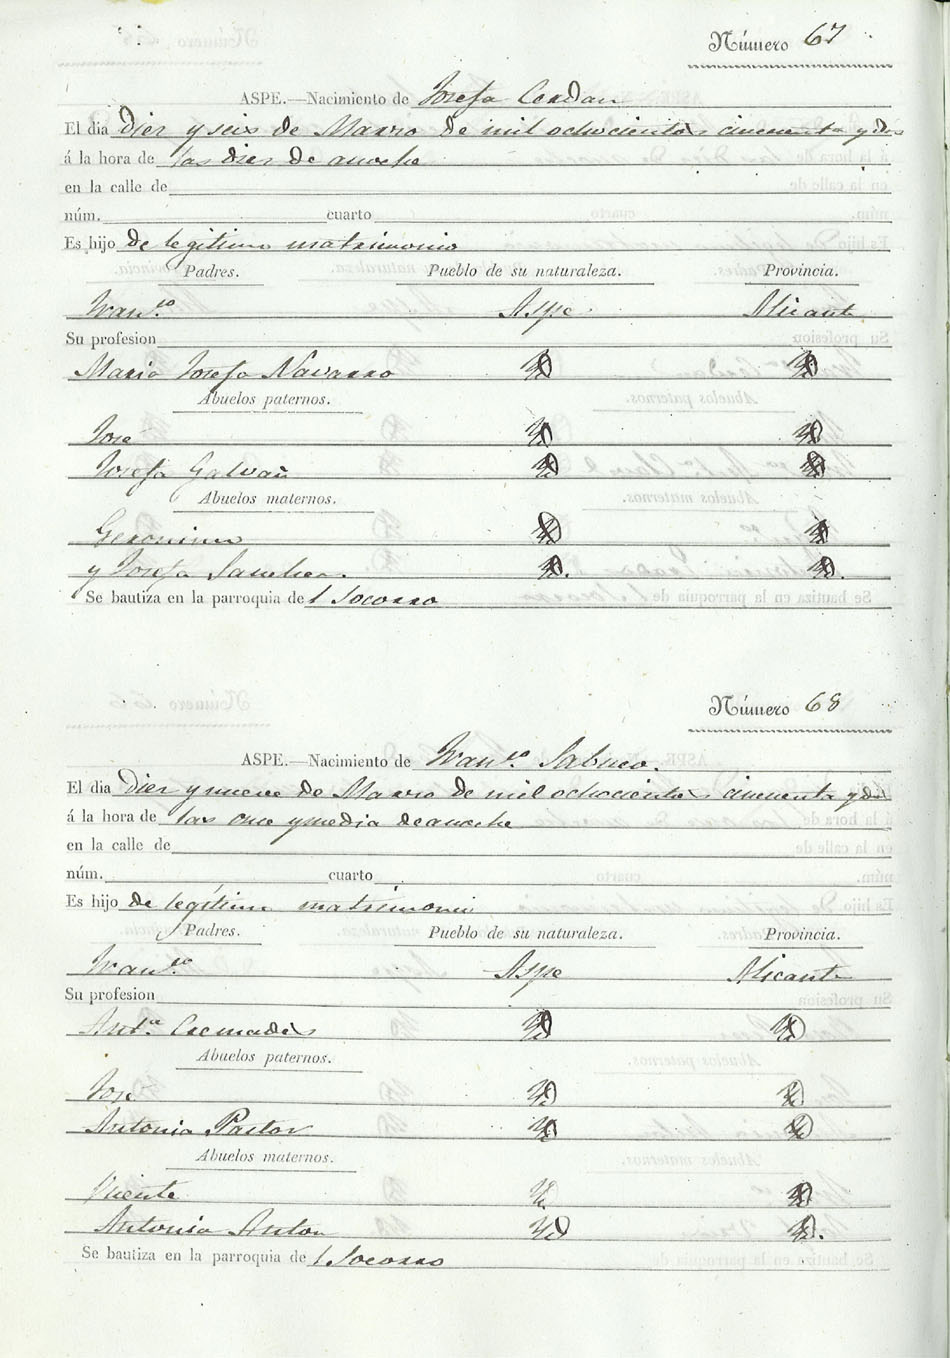 Número 67
ASPE.—Nacimiento de Josefa Cerdan
El dia diez y seis de Marzo de mil ochocientos cincuenta y dos
á la hora de las diez de anoche
en la calle de
núm. cuarto
Es hijo de legitimo matrimonio
Padres. Pueblo de su naturaleza. Provincia.
Fran.co Aspe Alicante
Su profesion
Maria Josefa Navarro Yd Yd
Abuelos paternos.
José Yd Yd
Josefa Galvañ Yd Yd
Abuelos maternos.
Geronimo Yd Yd
y Josefa Sanchez. Yd. Yd.
Se bautiza en la parroquia de l Socorro
Número 68
ASPE.—Nacimiento de Fran.co Sabuco.
El dia diez y nueve de Marzo de mil ochocientos cincuenta y dos
á la hora de las once y media de anoche
en la calle de
núm. cuarto
Es hijo de legítimo matrimonio
Padres. Pueblo de su naturaleza. Provincia.
Fran.co Aspe Alicante
Su profesion
Ant.a Cremades Yd Yd
Abuelos paternos.
José Yd Yd
Antonia Pastor Yd Yd
Abuelos maternos.
Vicente Yd Yd
Antonia Anton Yd Yd.
Se bautiza en la parroquia de l Socorro